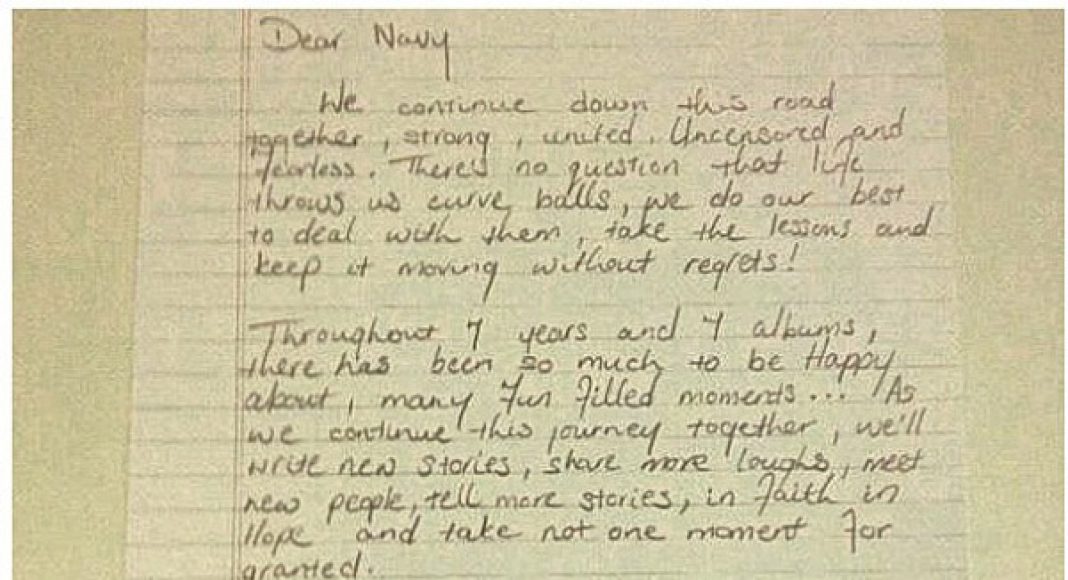 Dear Navy
We continue down this road
together, strong, united. Uncensored and
fearless. There's no question that life
throws us curve balls, we do our best
to deal with them, take the lessons and
keep it moving without regrets!
Throughout 7 years and 7 albums,
there has been so much to be Happy
about, many fun filled moments... As
we continue this journey together, we'll
write new stories, share more laughs, meet
new people, tell more stories, in faith in
Hope and take not one moment for
granted.